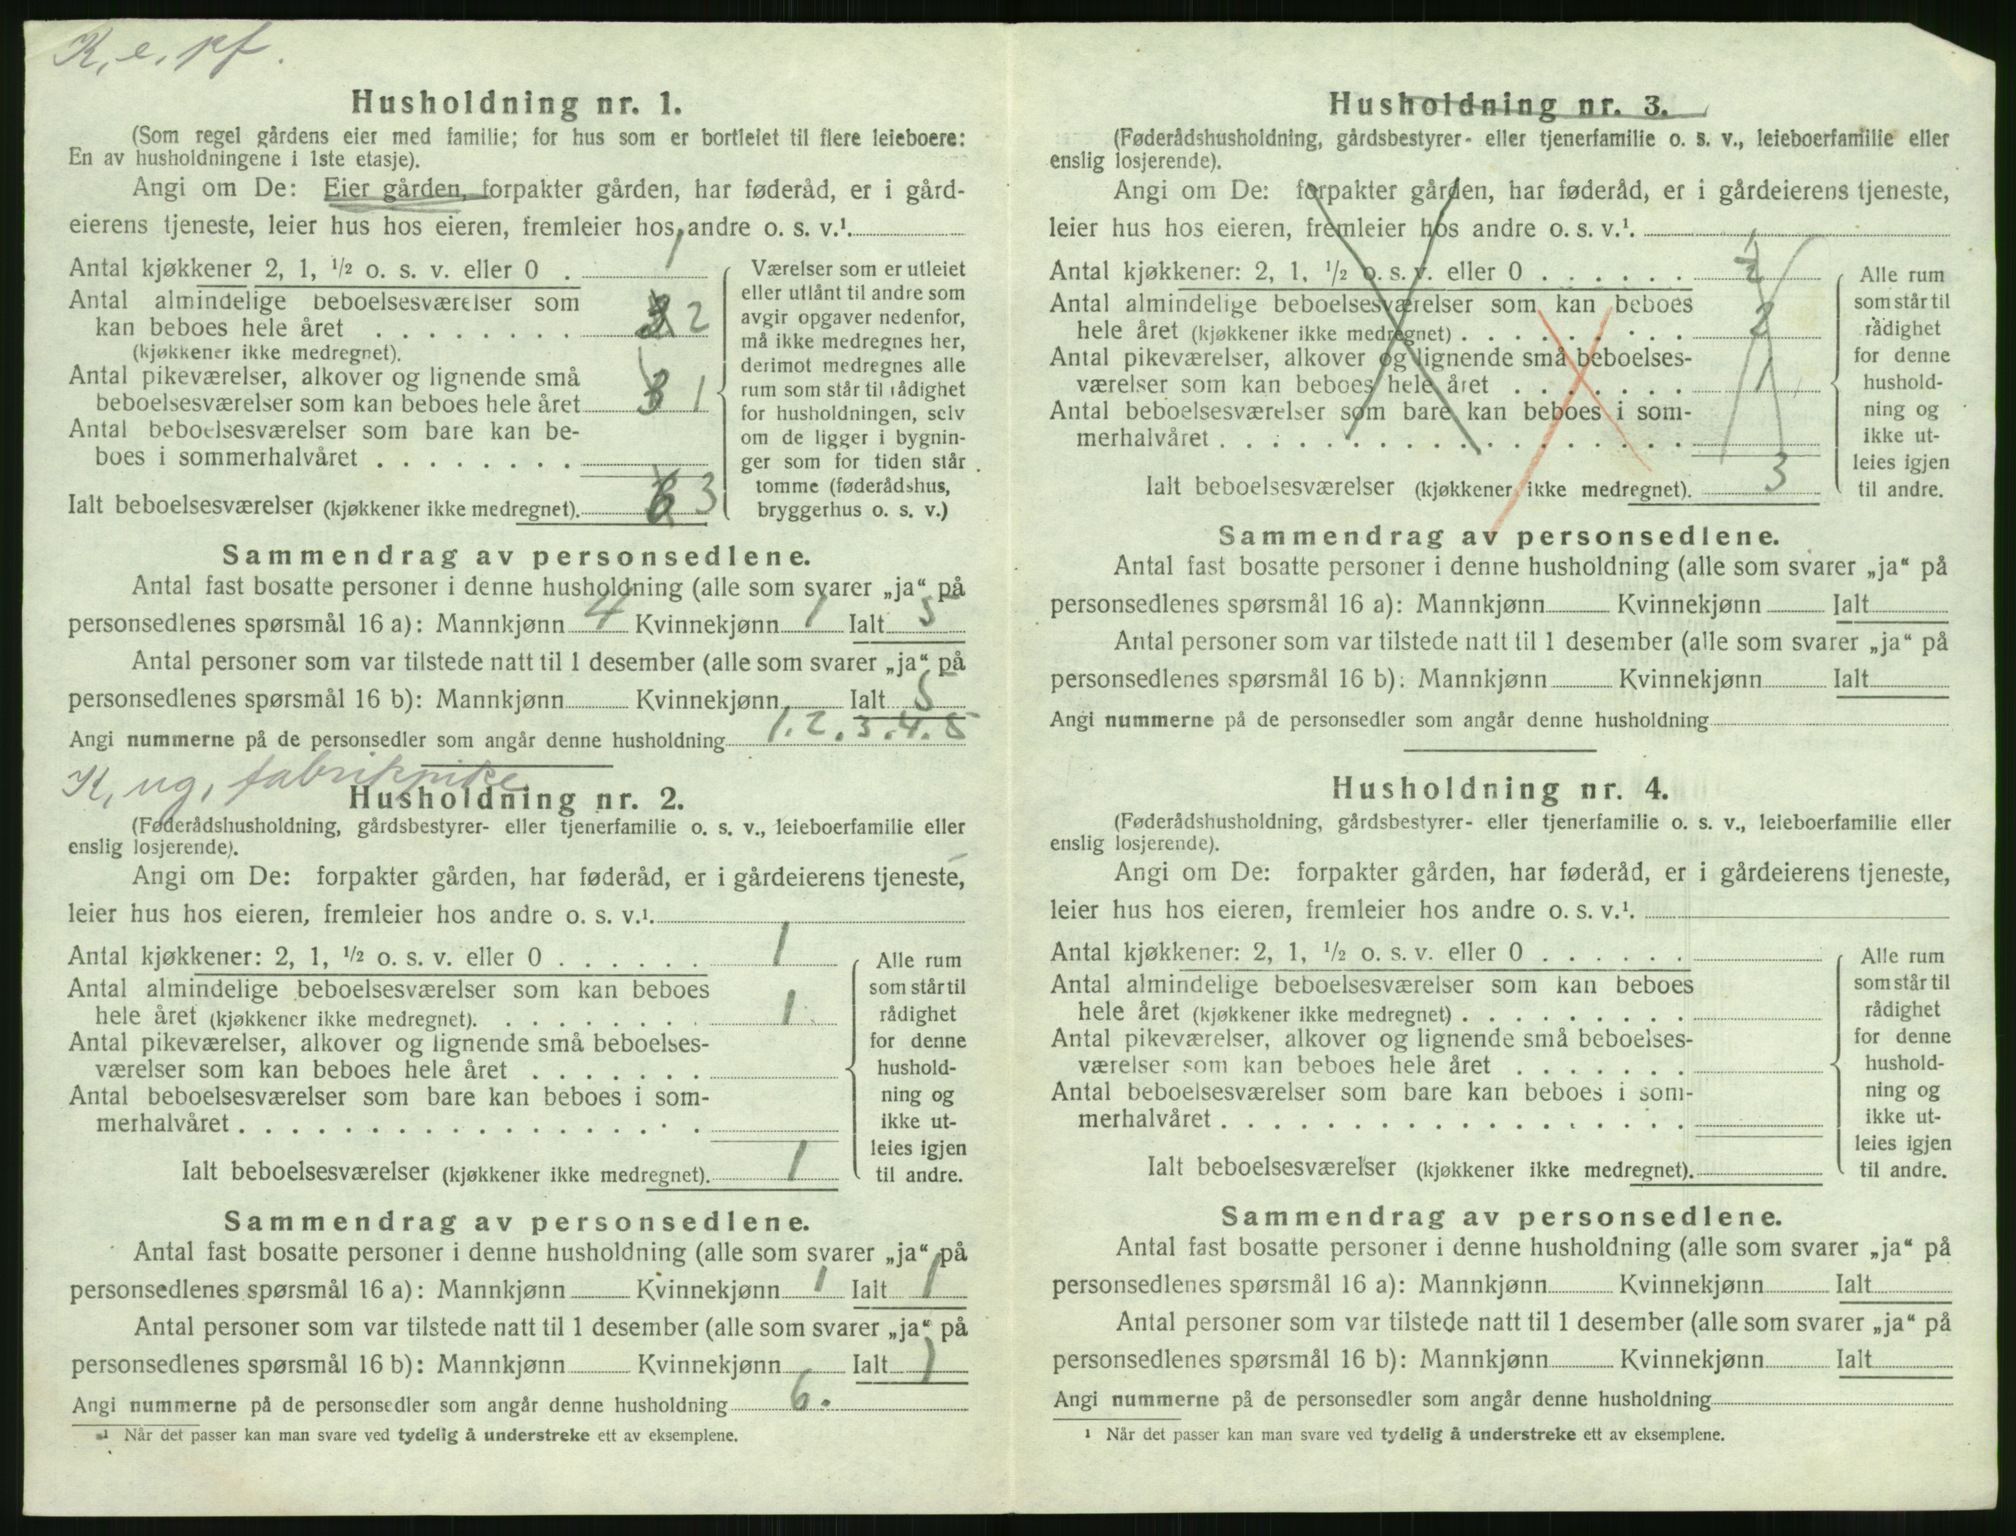 K, e, pf.
Husholdning nr. 1.
(Som regel gårdens eier med familie; for hus som er bortleiet til flere leieboere:
En av husholdningene i 1ste etasje).
Angi om De: Eier gården, forpakter gården, har føderåd, er i gård-
eierens tjeneste, leier hus hos eieren, fremleier hos andre o. s. v.¹
Antal kjøkkener 2, 1, ½ o. s. v. eller 0 . 1
Antal almindelige beboelsesværelser som
kan beboes hele året . . . . . . . . 2
(kjøkkener ikke medregnet).
Antal pikeværelser, alkover og lignende små
beboelsesværelser som kan beboes hele året 3 1
Antal beboelsesværelser som bare kan be-
boes i sommerhalvåret . . . . . . . .
Ialt beboelsesværelser (kjøkkener ikke medregnet). 6 3
Værelser som er utleiet
eller utlånt til andre som
avgir opgaver nedenfor,
må ikke medregnes her,
derimot medregnes alle
rum som står til rådighet
for husholdningen, selv
om de ligger i bygnin-
ger som for tiden står
tomme (føderådshus,
bryggerhus o. s. v.)
Sammendrag av personsedlene.
Antal fast bosatte personer i denne husholdning (alle som svarer „ja“ på
personsedlenes spørsmål 16 a): Mannkjønn 4 Kvinnekjønn 1 Ialt 5
Antal personer som var tilstede natt til 1 desember (alle som svarer „ja“ på
personsedlenes spørsmål 16 b): Mannkjønn Kvinnekjønn Ialt 5
Angi nummerne på de personsedler som angår denne husholdning 1. 2. 3. 4. 5
K, ug, fabrikpike.
Husholdning nr. 2.
(Føderådshusholdning, gårdsbestyrer- eller tjenerfamilie o. s. v., leieboerfamilie eller
enslig losjerende).
Angi om De: forpakter gården, har føderåd, er i gårdeierens tjeneste,
leier hus hos eieren, fremleier hos andre o. s. v.¹.
Antal kjøkkener: 2, 1, ½ o. s. v. eller 0 . . . . . . 1
Antal almindelige beboelsesværelser som kan beboes
hele året (kjøkkener ikke medregnet). . . . . . . . . 1
Antal pikeværelser, alkover og lignende små beboelses-
værelser som kan beboes hele året . . . . . . .
Antal beboelsesværelser som bare kan beboes i som-
merhalvåret . . . . . . . . . . . . . . . . . .
Ialt beboelsesværelser (kjøkkener ikke medregnet). 1
Alle rum
som står til
rådighet
for denne
hushold-
ning og
ikke ut-
leies igjen
til andre.
Sammendrag av personsedlene.
Antal fast bosatte personer i denne husholdning (alle som svarer „ja“ på
personsedlenes spørsmål 16 a): Mannkjønn Kvinnekjønn 1 Ialt 1
Antal personer som var tilstede natt til 1 desember (alle som svarer „ja“ på
personsedlenes spørsmål 16 b): Mannkjønn Kvinnekjønn Ialt 1
Angi nummerne på de personsedler som angår denne husholdning 6.
¹ Når det passer kan man svare ved tydelig å understreke ett av eksemplene.
Husholdning nr. 3.
(Føderådshusholdning, gårdsbestyrer- eller tjenerfamilie o. s. v., leieboerfamilie eller
enslig losjerende).
Angi om De: forpakter gården, har føderåd, er i gårdeierens tjeneste,
leier hus hos eieren, fremleier hos andre o. s. v.¹.
Antal kjøkkener: 2, 1, ½ o. s. v. eller 0 . . . . . . ½
Antal almindelige beboelsesværelser som kan beboes
hele året (kjøkkener ikke medregnet) . . . . . . . . . 2
Antal pikeværelser, alkover og lignende små beboelses-
værelser som kan beboes hele året . . . . . . . 1
Antal beboelsesværelser som bare kan beboes i som-
merhalvåret . . . . . . . . . . . . . . . . . .
Ialt beboelsesværelser (kjøkkener ikke medregnet). 3
Alle rum
som står til
rådighet
for denne
hushold-
ning og
ikke ut-
leies igjen
til andre.
Sammendrag av personsedlene.
Antal fast bosatte personer i denne husholdning (alle som svarer „ja“ på
personsedlenes spørsmål 16 a): Mannkjønn Kvinnekjønn Ialt
Antal personer som var tilstede natt til 1 desember (alle som svarer „ja“ på
personsedlenes spørsmål 16 b): Mannkjønn Kvinnekjønn Ialt
Angi nummerne på de personsedler som angår denne husholdning
Husholdning nr. 4.
(Føderådshusholdning, gårdsbestyrer- eller tjenerfamilie o. s. v., leieboerfamilie eller
enslig losjerende).
Angi om De: forpakter gården, har føderåd, er i gårdeierens tjeneste,
leier hus hos eieren, fremleier hos andre o. s. v.¹.
Antal kjøkkener: 2, 1, ½ o. s. v. eller 0 . . . . . .
Antal almindelige beboelsesværelser som kan beboes
hele året (kjøkkener ikke medregnet) . . . . . . . . .
Antal pikeværelser, alkover og lignende små beboelses-
værelser som kan beboes hele året . . . . . . .
Antal beboelsesværelser som bare kan beboes i som-
merhalvåret . . . . . . . . . . . . . . . . . .
Ialt beboelsesværelser (kjøkkener ikke medregnet).
Alle rum
som står til
rådighet
for denne
hushold-
ning og
ikke ut-
leies igjen
til andre.
Sammendrag av personsedlene.
Antal fast bosatte personer i denne husholdning (alle som svarer „ja“ på
personsedlenes spørsmål 16 a): Mannkjønn Kvinnekjønn Ialt
Antal personer som var tilstede natt til 1 desember (alle som svarer „ja“ på
personsedlenes spørsmål 16 b): Mannkjønn Kvinnekjønn Ialt
Angi nummerne på de personsedler som angår denne husholdning
¹ Når det passer kan man svare ved tydelig å understreke ett av eksemplene.